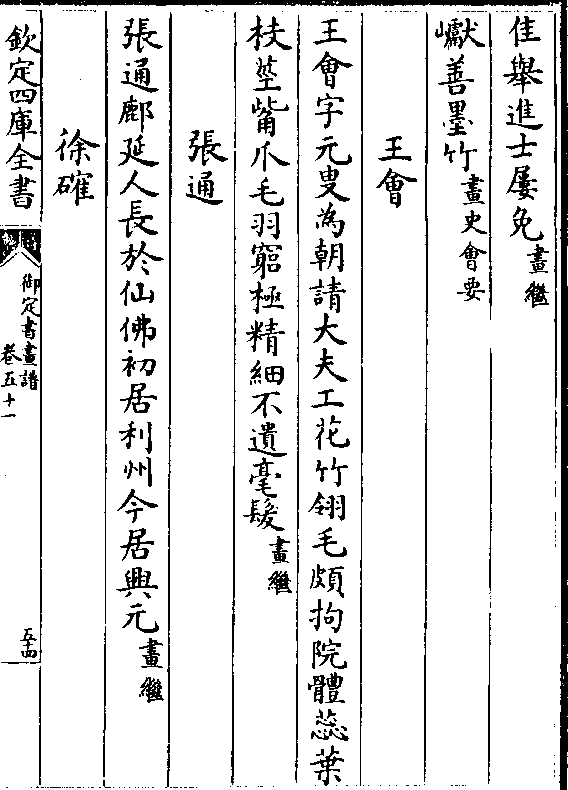 佳舉進士屢免畫繼
巘善墨竹畫史會要
王會
王會字元叟為朝請大夫工花竹翎毛頗拘院體蕊葉
枝莖觜爪毛羽窮極精細不遺毫髮畫繼
張通
張通鄜延人長於仙佛初居利州今居興元畫繼
徐確
欽定四庫全書
御定書畫譜
卷五十一
五十四